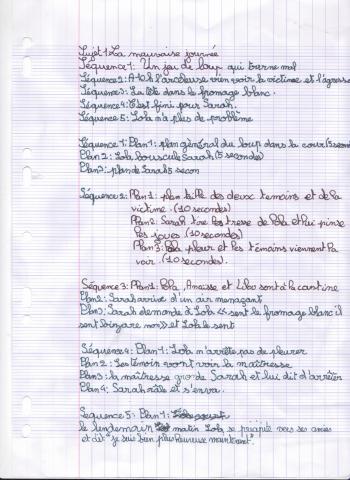 Sujet 1: La mauvaise journée
Séquence 1: Un jeu de loup qui tourne mal
Séquence 2: A 10h l'arceleuse vien voir la victime et l'agresse
Séquence 3: La tête dans le fromage blanc.
Séquence 4: C'est fini pour Sarah.
Séquence 5: Lola n'a plus de problème
Séquence 1: Plan 1: plan général du loup dans la cour (5 secon
Plan 2: Lola bouscule Sarah (5 secondes)
Plan 3: plan de Sarah 5 secon
Séquence 2: Plan 1: plan taille des deux temoins et de la
victime. (10 secondes)
Plan 2: Sarah tire les tresse de Lola et lui pinse
les joues (10 secondes)
Plan 3: Lola pleur et les témoins viennent la
voir. (10 secondes).
Séquence 3: Plan 1: Lola, et sont à la cantine
Plan 2: Sarah arrive d'un air menaçant
Plan 3: Sarah demande à Lola << sent le fromage blanc il
sent bizare non >> et Lola le sent
Séquence 4: Plan 1: Lola n'arrête pas de pleurer
Plan 2: Les témoin vont voir la maîtresse
Plan 3: la maîtresse gronde Sarah et lui dit d'arrêter
Plan 4: Sarah râle et s'en va.
Séquence 5: Plan 1:
le lendemain matin Lola se precipite vers ses amies
et dit "je suis bien plus heureuse maintenant".